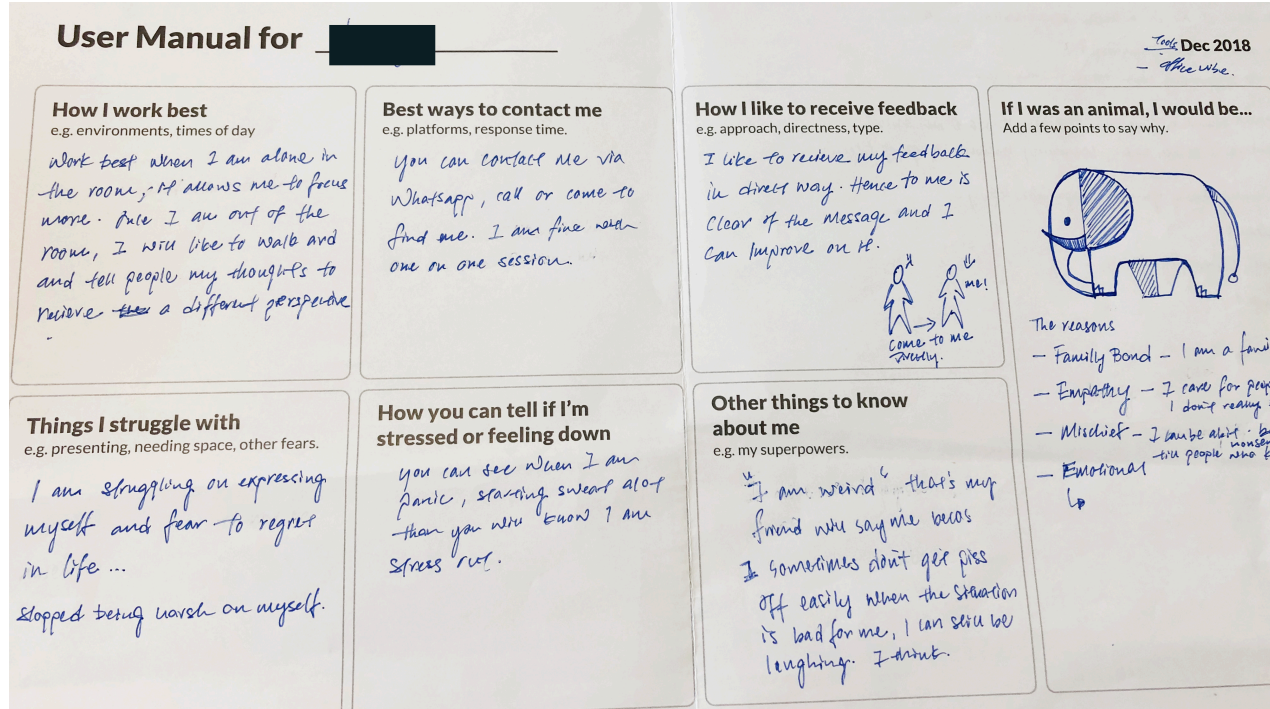 User Manual for
Tools
Dec 2018
- office vibe.
How I work best
e.g. environments, times of day
Work best when I am alone in
the room, it allows me to focus
more. I am out of the
room, I will like to walk and
and tell people my thoughts to
recieve a different perspective
Best ways to contact me
e.g. platforms, response time.
You can contact me via
Whatsapp, call or come to
find me. I am fine with
one on one session.
How I like to receive feedback
e.g. approach, directness, type.
I like to recieve my feedback
in direct way. Hence to me is
Clear of the message and I
Can Improve on it.
me!
Come to me
Directly.
If I was an animal, I would be...
Add a few points to say why.
The reasons
- Family Bond - I am a fami
- Empathy - I care for peop
I don't really
- Mischief - I can be abit. b
nonse
till people who
- Emotional
Things I struggle with
e.g. presenting, needing space, other fears.
I am struggling on expressing
myself and fear to regret
in life ...
stopped being harsh on myself.
How you can tell if I'm
stressed or feeling down
you can see when I am
panic, starting sweat alot
than you will know I am
stress out.
Other things to know
about me
e.g. my superpowers.
"I am weird" that's my
friend will say me becos
I sometimes don't get piss
off easily when the situation
is bad for me, I can still be
laughing. I think.